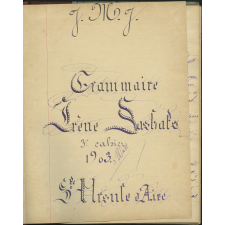 J. M. J.
Grammaire
Irène
3e cahier
1903
Ste Ursule d'Aire